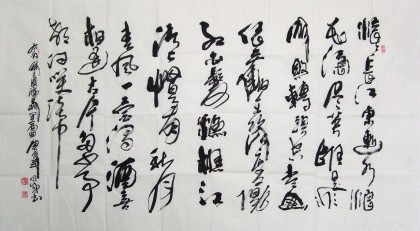 滚滚长江东逝水浪
花淘尽英雄是非
成败转头空青山
依旧在几度夕阳
红白发渔樵江
渚上惯看秋月
春风一壶浊酒喜
相逢古今多少事
都付笑谈中